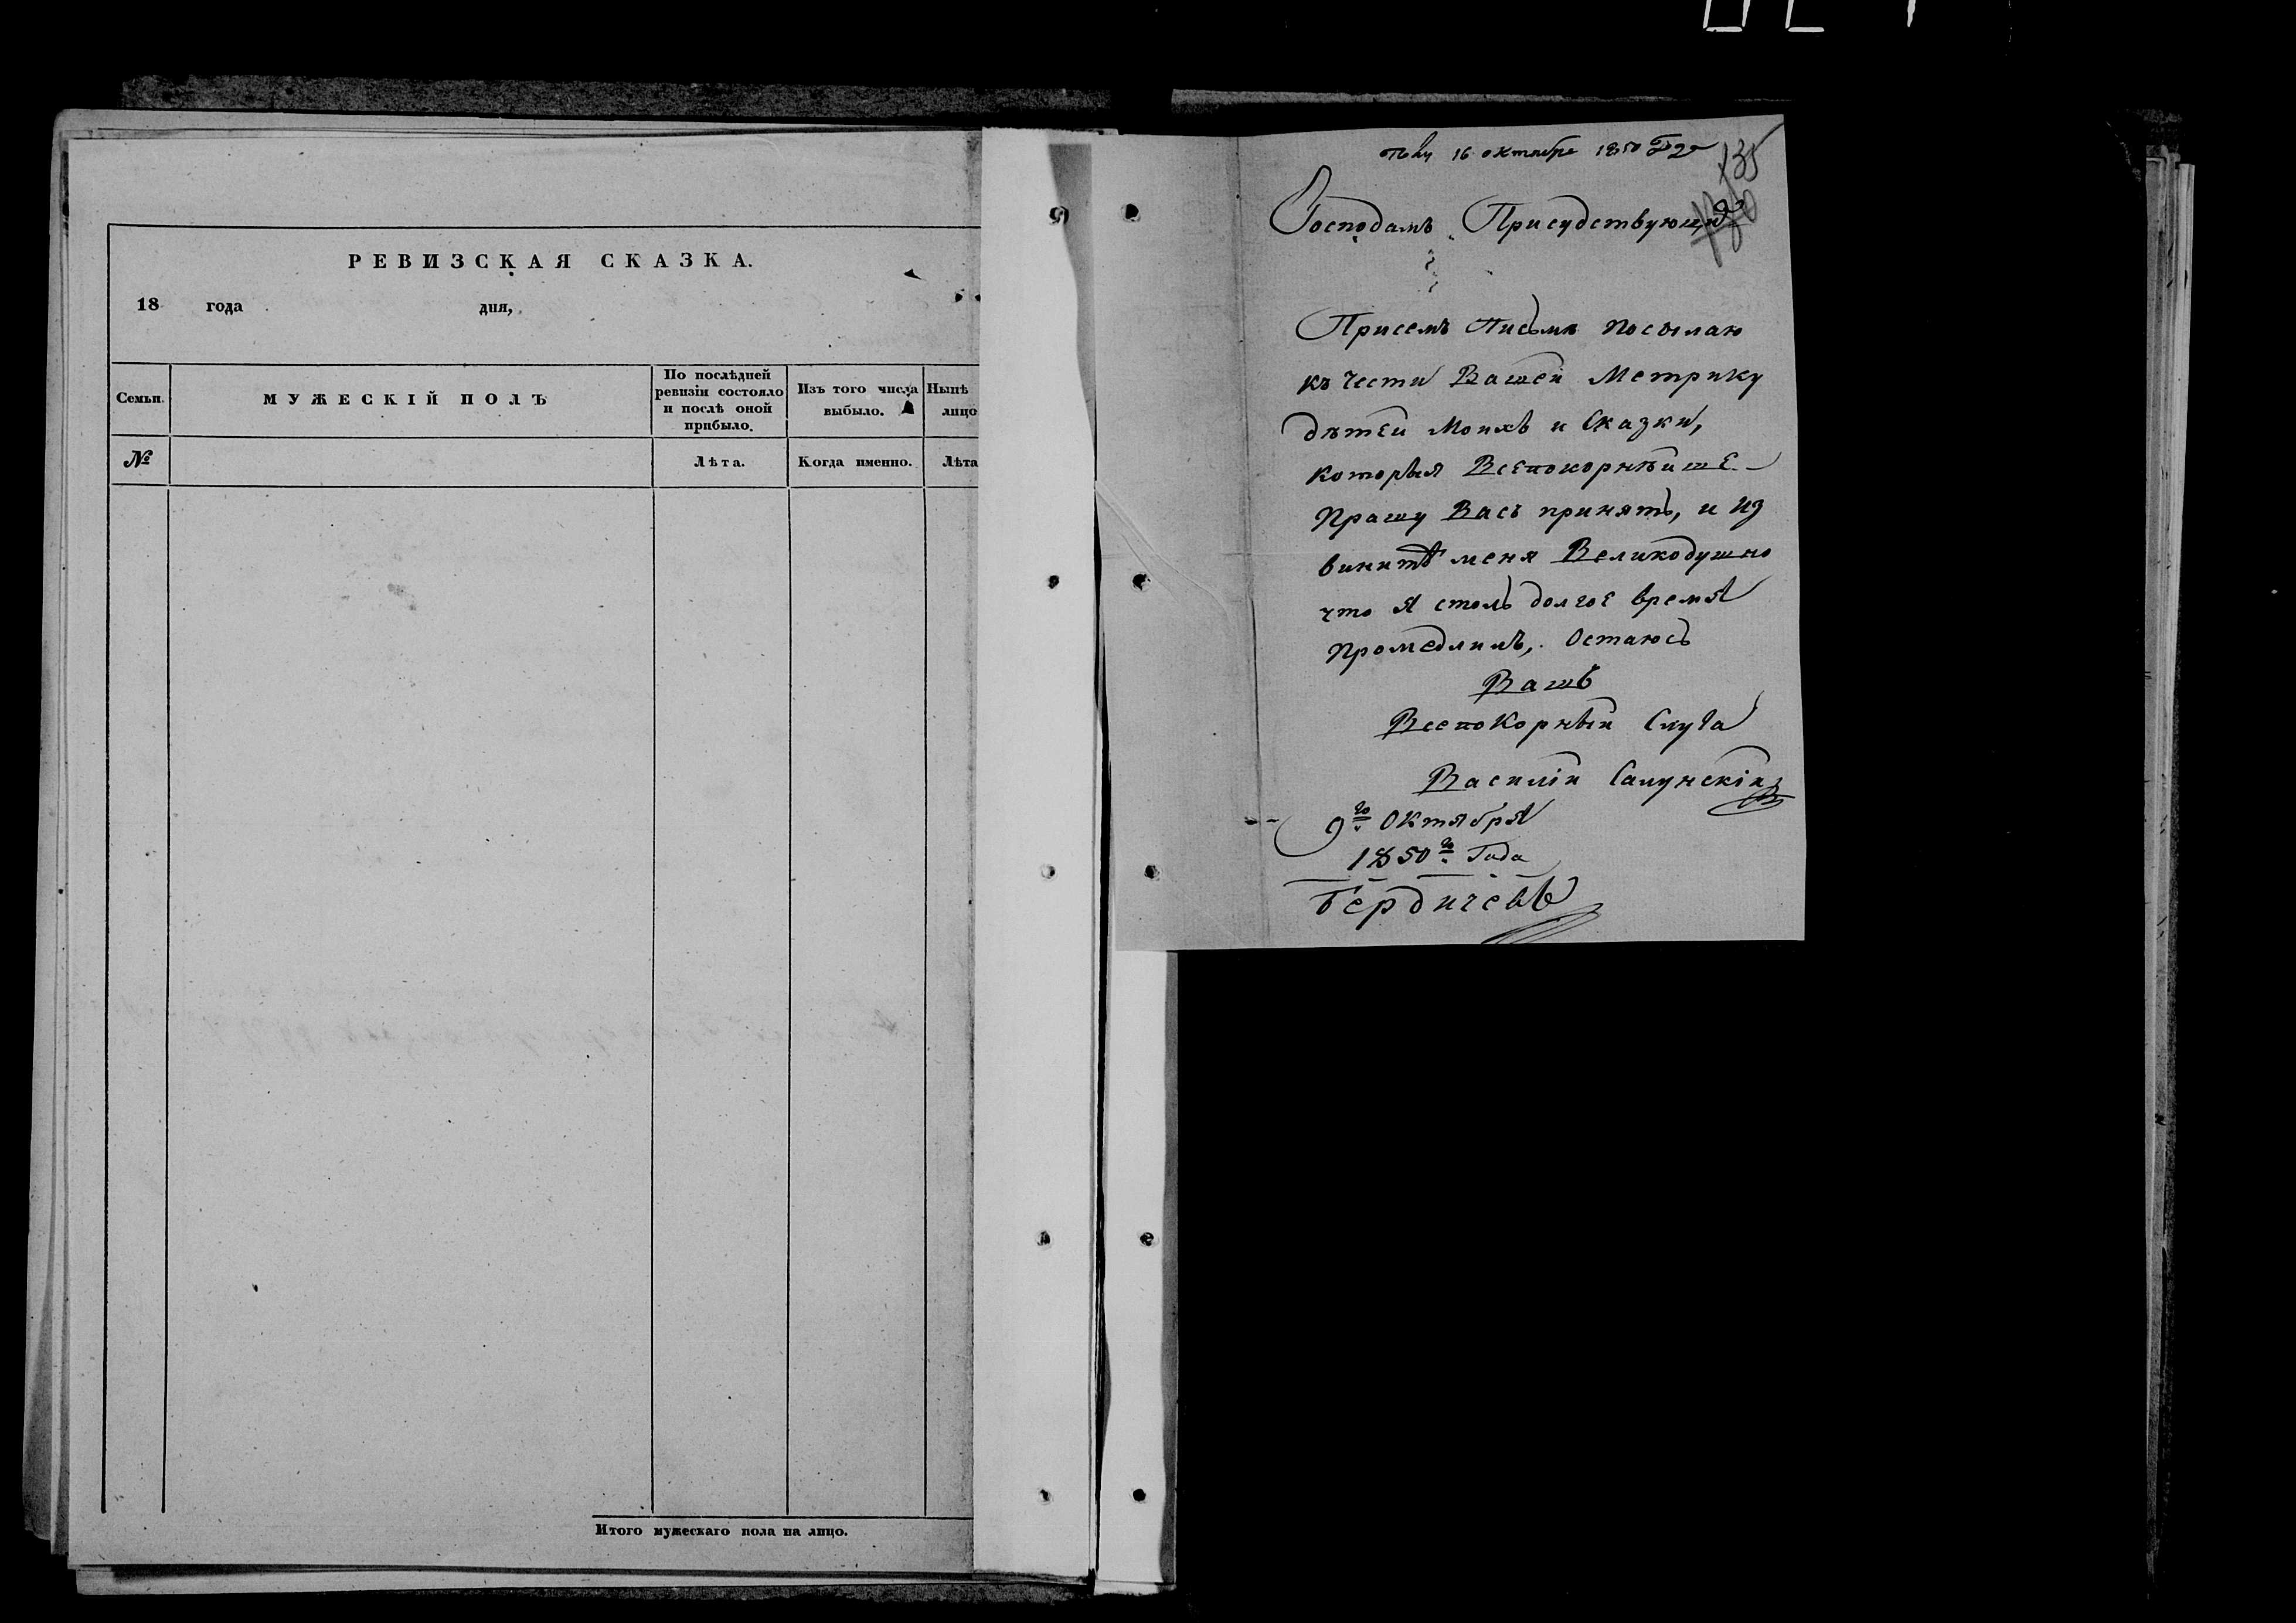 РЕВИЗСКАЯ СКАЗКА.
18 года дня,
Семьи.
МУЖЕСКІЙ ПОЛЪ
По послѣдней
ревизіи состояло
и послѣ оной
прибыло.
Изъ того числа
выбыло.
Нынѣ
лицо
№
Лѣта.
Когда именно.
Лѣта
Итого мужескаго пола на лицо.
16 октября 1850 года
135
Господамъ Присудствующи
Присемъ Письмѣ Посылаю
къ Чести Вашей Метрику
дѣтей Моихъ и Сказки,
которыя Всепокорнѣйше
Прашу Васъ принять, и из
винитѣ меня Великодушно
что я столь долгое время
Промедлилъ, Остаюсь
Вашъ
Всепокорный Слуга
Василій Салунскій
9го Октября
1850го Года
Бердичевъ